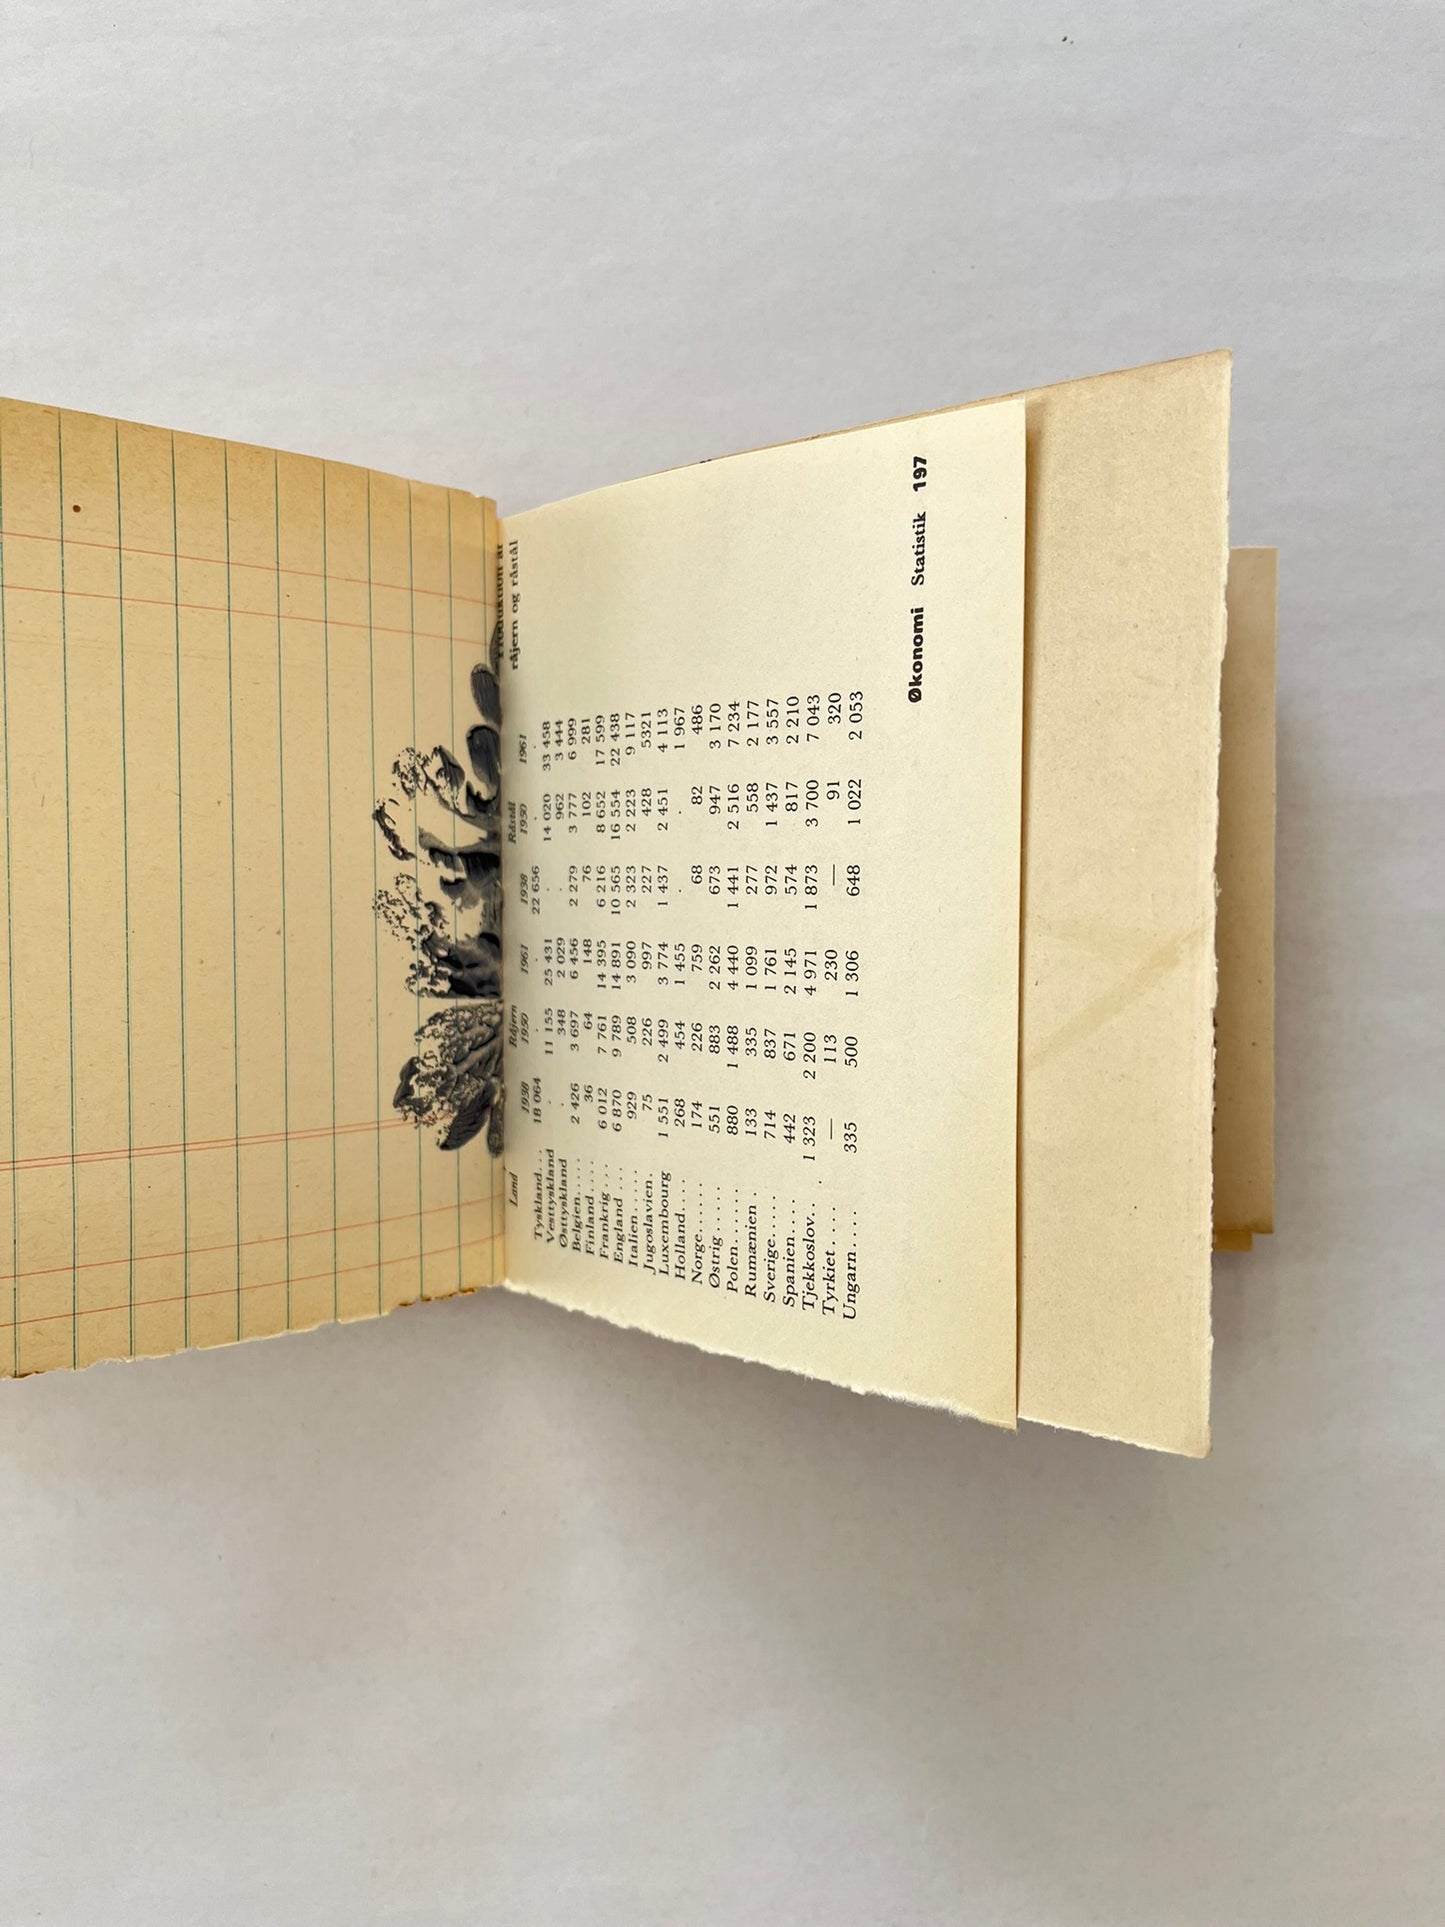 Økonomi Statistik 197
Produktion af
råjern og råstål
Råjern Råstål
Land 1938 1950 1961 1938 1950 1961
Tyskland... 18 064 . . 22 656 . .
Vesttyskland . 11 155 25 431 . 14 020 33 458
Østtyskland . 348 2 029 . 962 3 444
Belgien..... 2 426 3 697 6 456 2 279 3 777 6 999
Finland..... 36 64 148 76 102 281
Frankrig ... 6 012 7 761 14 395 6 216 8 652 17 599
England ... 6 870 9 789 14 891 10 565 16 554 22 438
Italien..... 929 508 3 090 2 323 2 223 9 117
Jugoslavien. 75 226 997 227 428 5321
Luxembourg 1 551 2 499 3 774 1 437 2 451 4 113
Holland.... 268 454 1 455 . . 1 967
Norge...... 174 226 759 68 82 486
Østrig ..... 551 883 2 262 673 947 3 170
Polen...... 880 1 488 4 440 1 441 2 516 7 234
Rumænien . 133 335 1 099 277 558 2 177
Sverige..... 714 837 1 761 972 1 437 3 557
Spanien.... 442 671 2 145 574 817 2 210
Tjekkoslov.. . 1 323 2 200 4 971 1 873 3 700 7 043
Tyrkiet ..... — 113 230 — 91 320
Ungarn.... 335 500 1 306 648 1 022 2 053